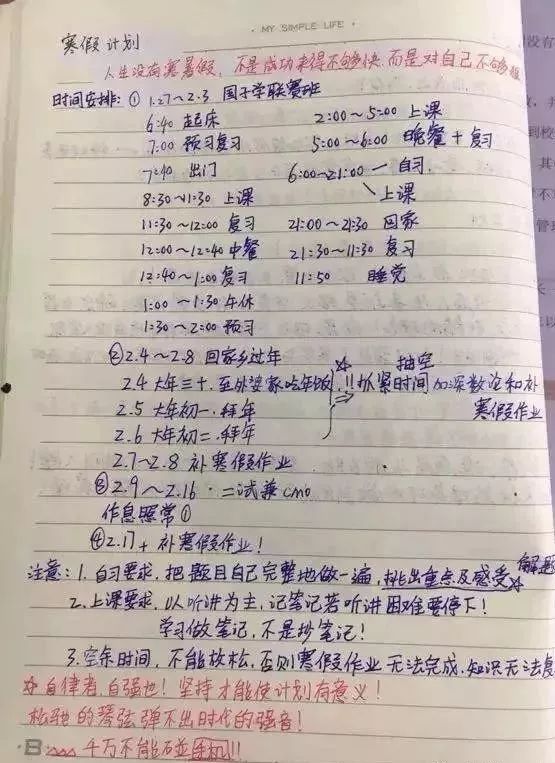 · MY SIMPLE LIFE ·
寒假计划
人生没有寒暑假，不是成功来得不够快 而是对自己不够狠
时间安排：① 1.27～2.3 国子学联赛班
6:40 起床 2:00～5:00 上课
7:00 预习复习 5:00～6:00 晚餐 + 复习
7:40 出门 6:00～21:00 — 自习
上课
8:30～11:30 上课
11:30～12:00 复习 21:00～21:30 回家
12:00～12:40 中餐 21:30～11:30 复习
12:40～1:00 复习 11:50 睡觉
1:00～1:30 午休
1:30～2:00 预习
② 2.4～2.8 回家乡过年 抽空
2.4 大年三十. 至外婆家吃年饭 !! 抓紧时间 加深数论和补
2.5 大年初一. 拜年 寒假作业
2.6 大年初二. 拜年
2.7～2.8 补寒假作业
③ 2.9～2.16 · 二试兼cmo
作息照常①
④ 2.17+ 补寒假作业！
注意：1. 自习要求，把题目自己完整地做一遍，挑出重点及感受☆ 解题
2. 上课要求，以听讲为主，记笔记若听讲困难要停下！
学习做笔记，不是抄笔记！
3. 空余时间，不能放松，否则寒假作业无法完成，知识无法复
☆ 自律者，自强也！坚持才能使计划有意义！
松弛的琴弦弹不出时代的强音！
千万不能碰手机!!!